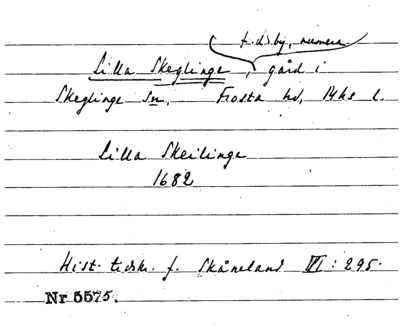 f.d. by, numera
Lilla Skeglinge, gård i
Skeglinge sn, Frosta hd, Mhs l.
Lilla Skeilinge
1682
Hist. tidskr. f. Skåneland VI: 295.
Nr 5575.